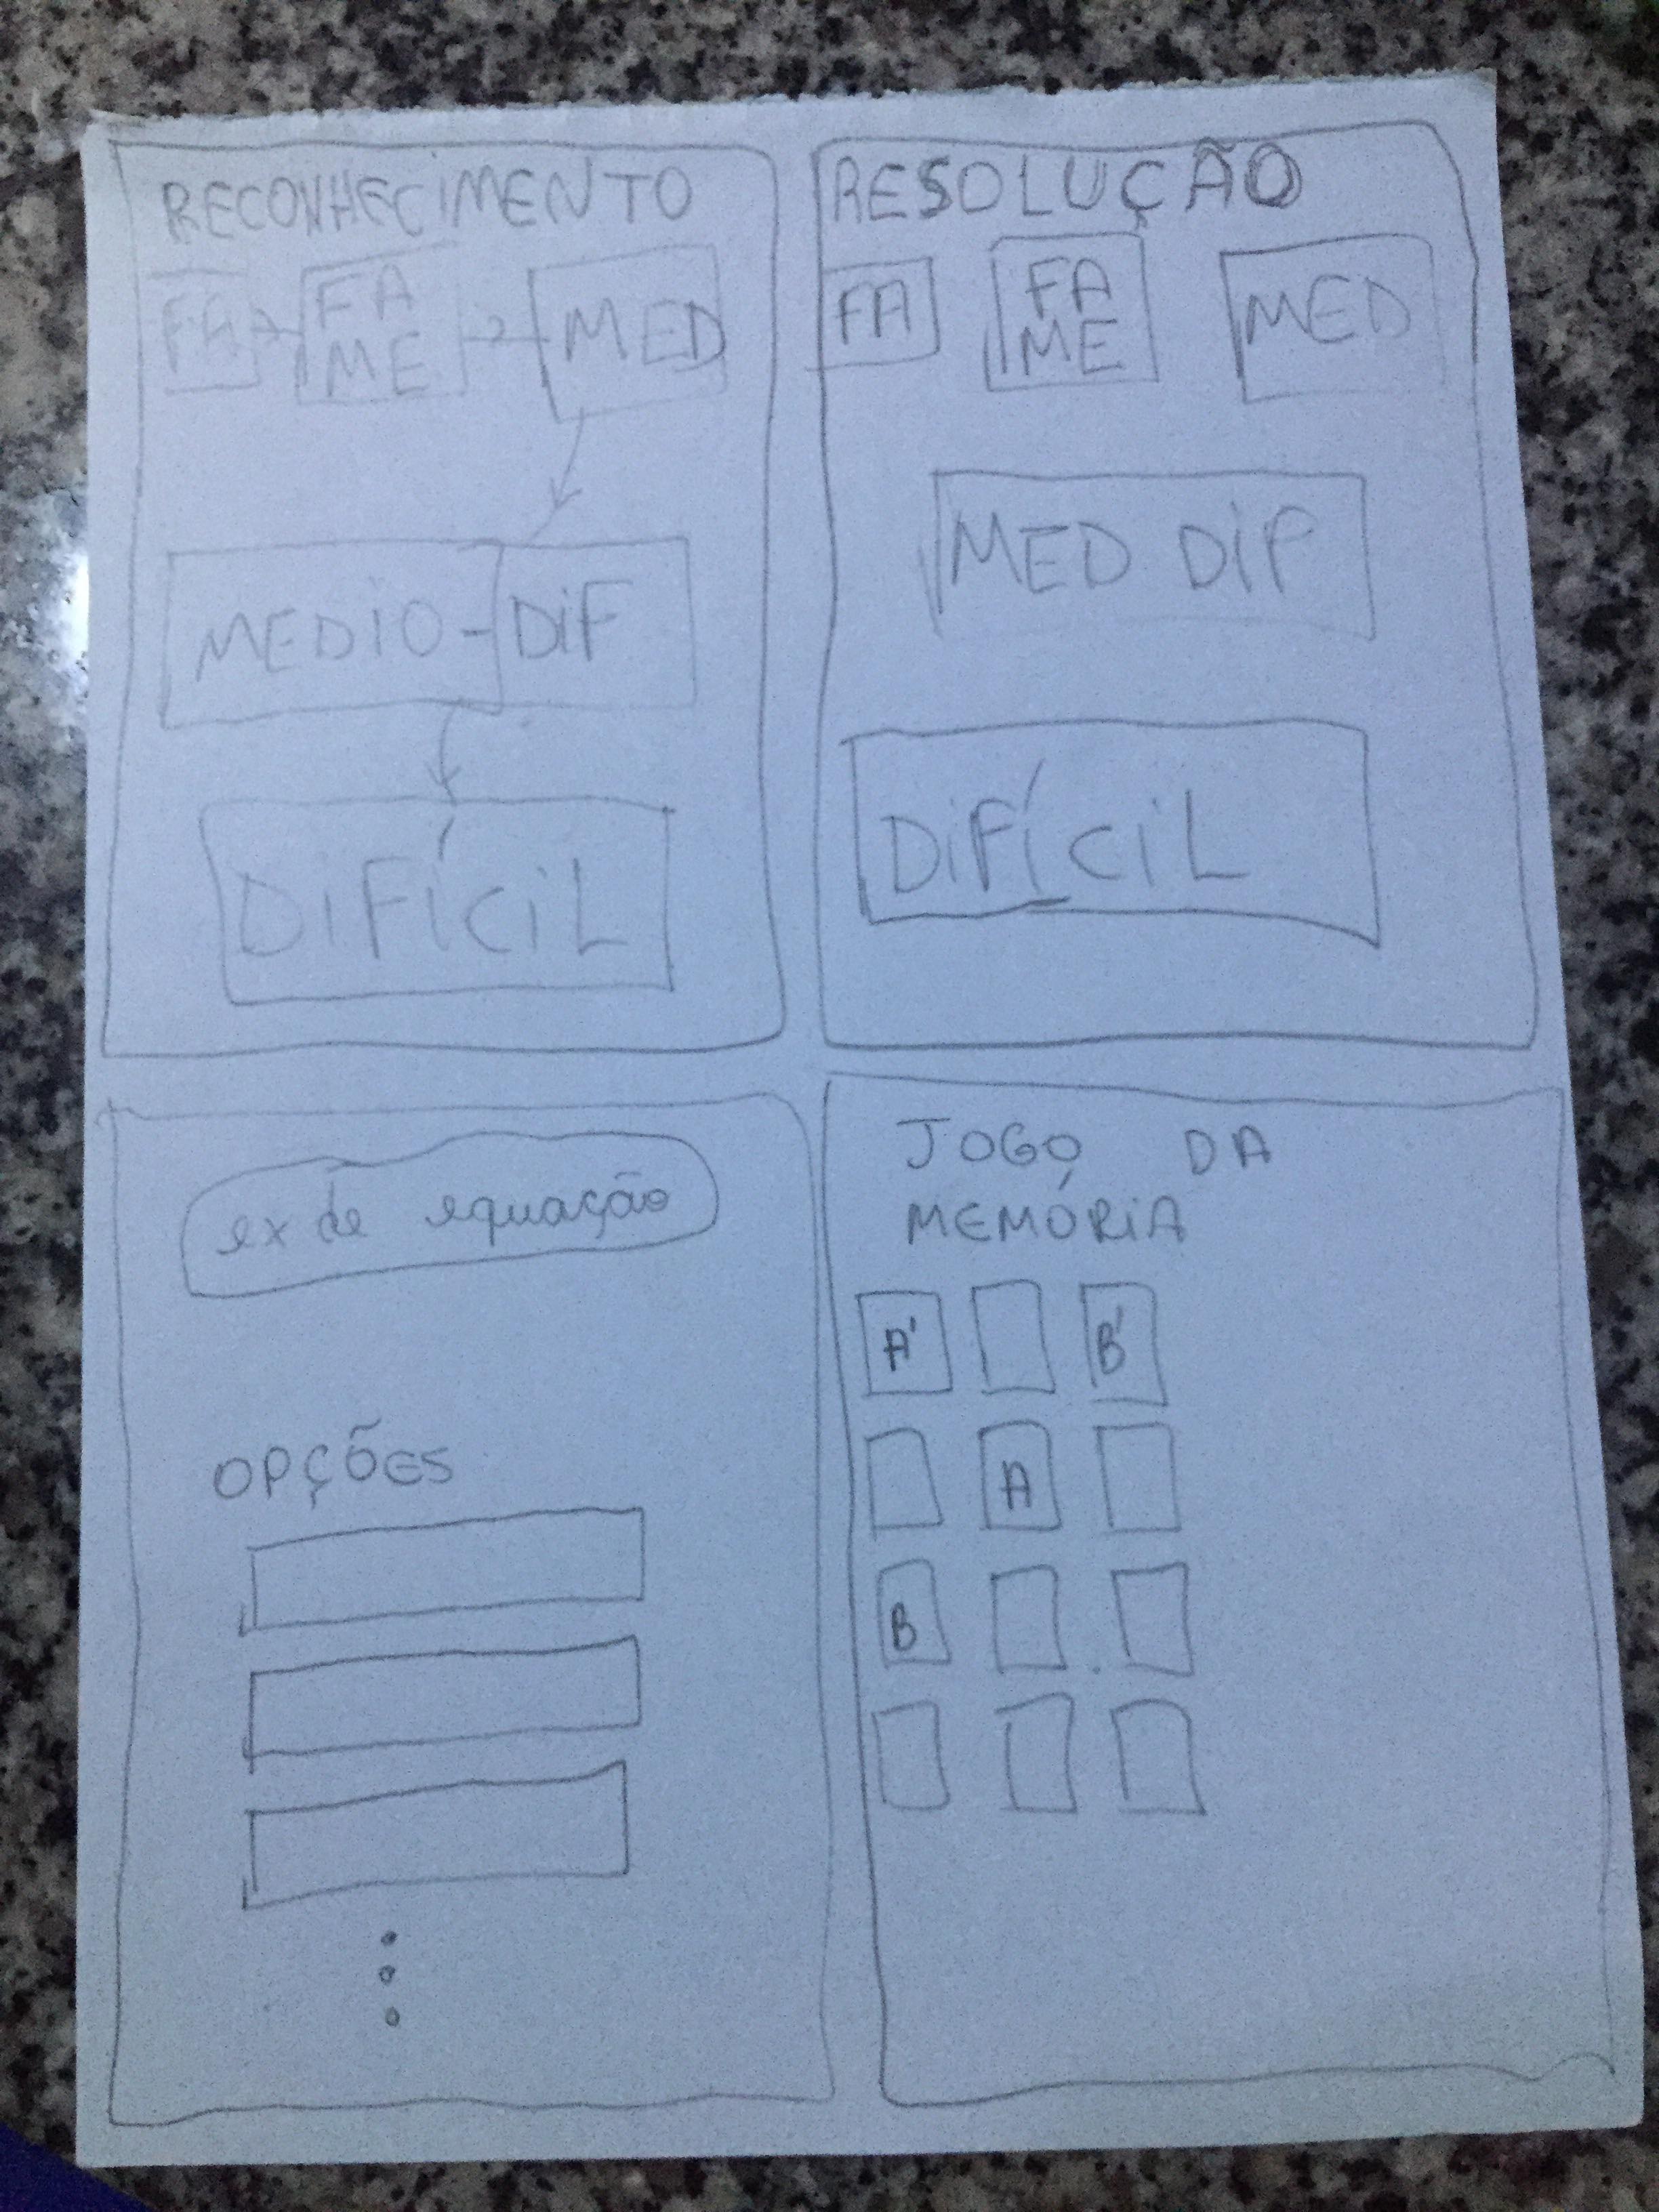 RECONHECIMENTO
FA
FA
ME
MED
MEDIO - DIF
DIFÍCIL
RESOLUÇÃO
FA
FA
ME
MED
MED DIF
DIFÍCIL
ex de equação
OPÇÕES
JOGO DA
MEMÓRIA
A' B'
A
B